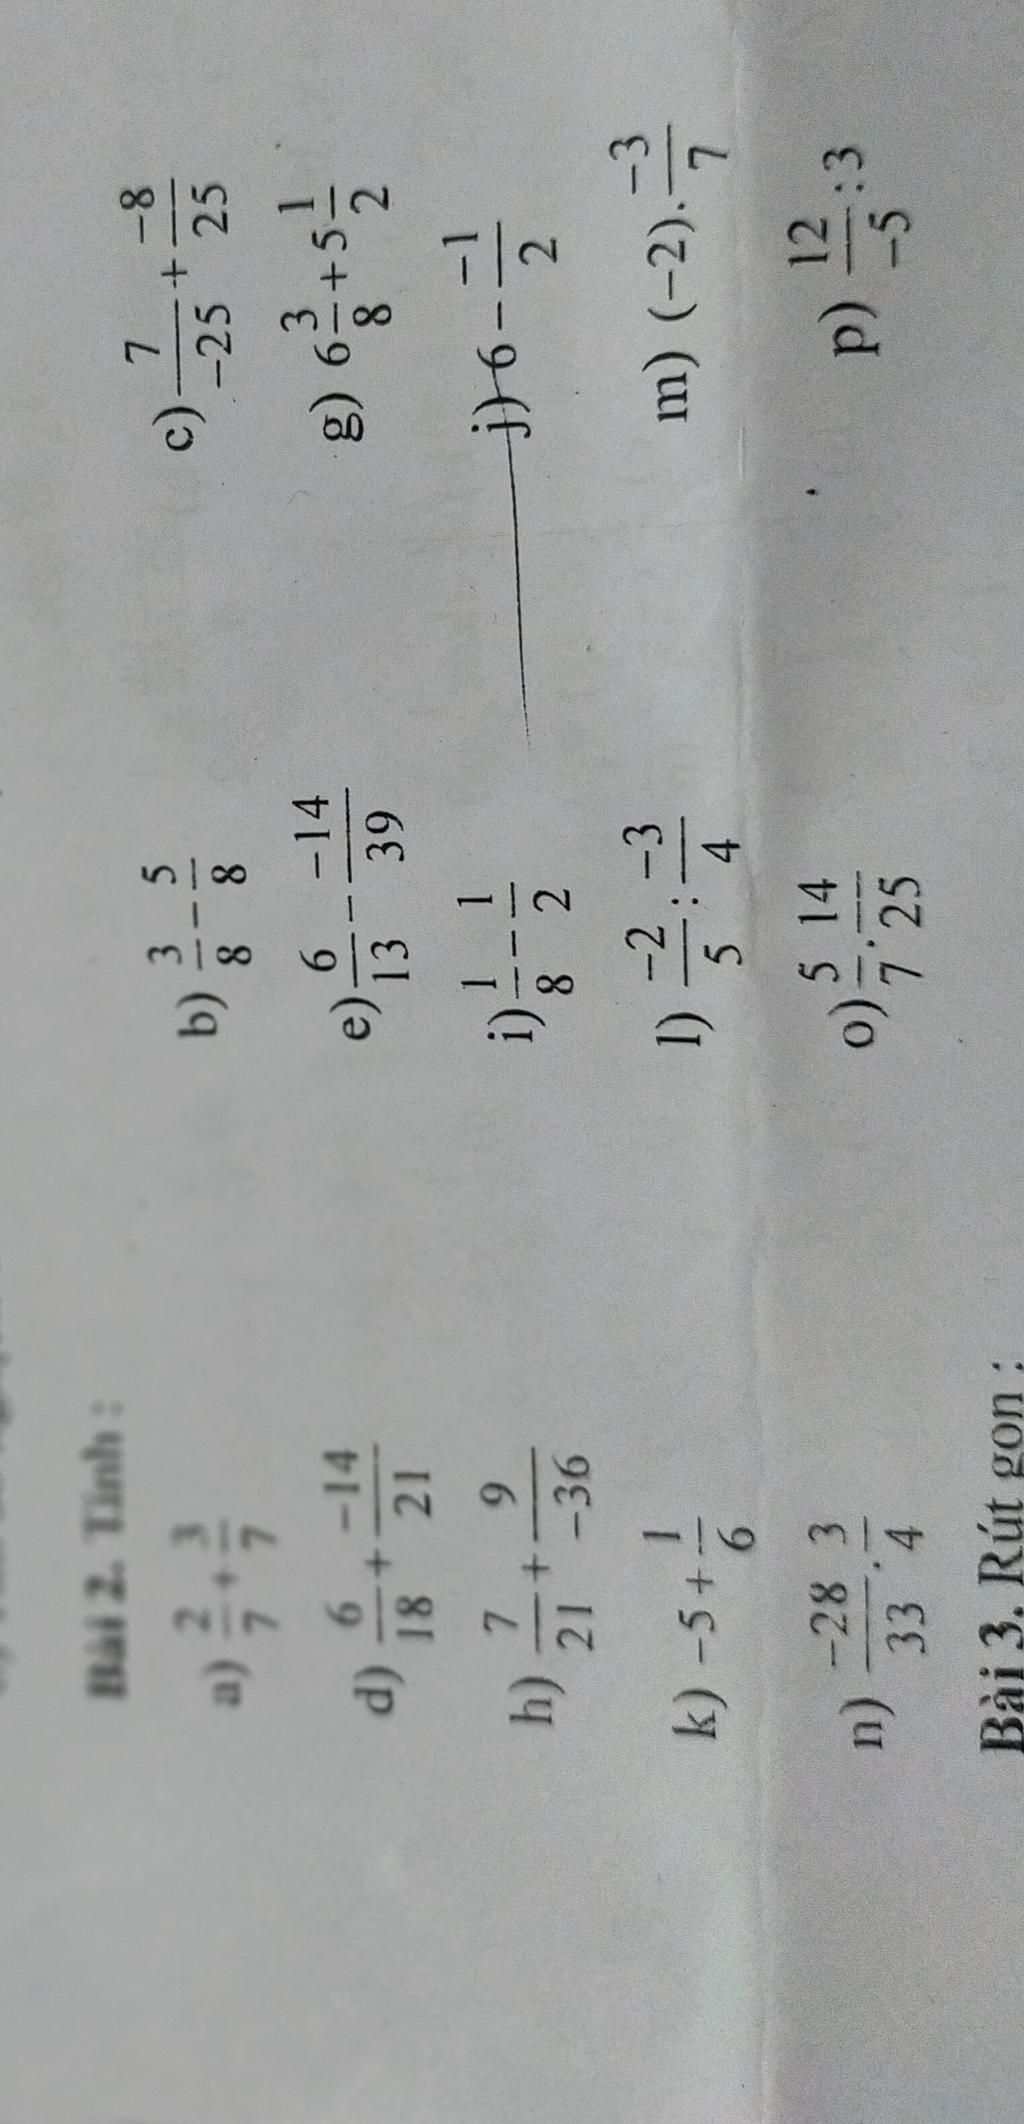 Bài 2. Tính :
a) 2/7 + 3/7 b) 3/8 − 5/8 c) 7/−25 + −8/25
d) 6/18 + −14/21 e) 6/13 − −14/39 g) 6 3/8 + 5 1/2
h) 7/21 + 9/−36 i) 1/8 − 1/2 j) 6 − −1/2
k) −5 + 1/6 l) −2/5 : −3/4 m) (−2). −3/7
n) −28/33 . 3/4 o) 5/7 . 14/25 p) 12/−5 : 3
Bài 3. Rút gọn :